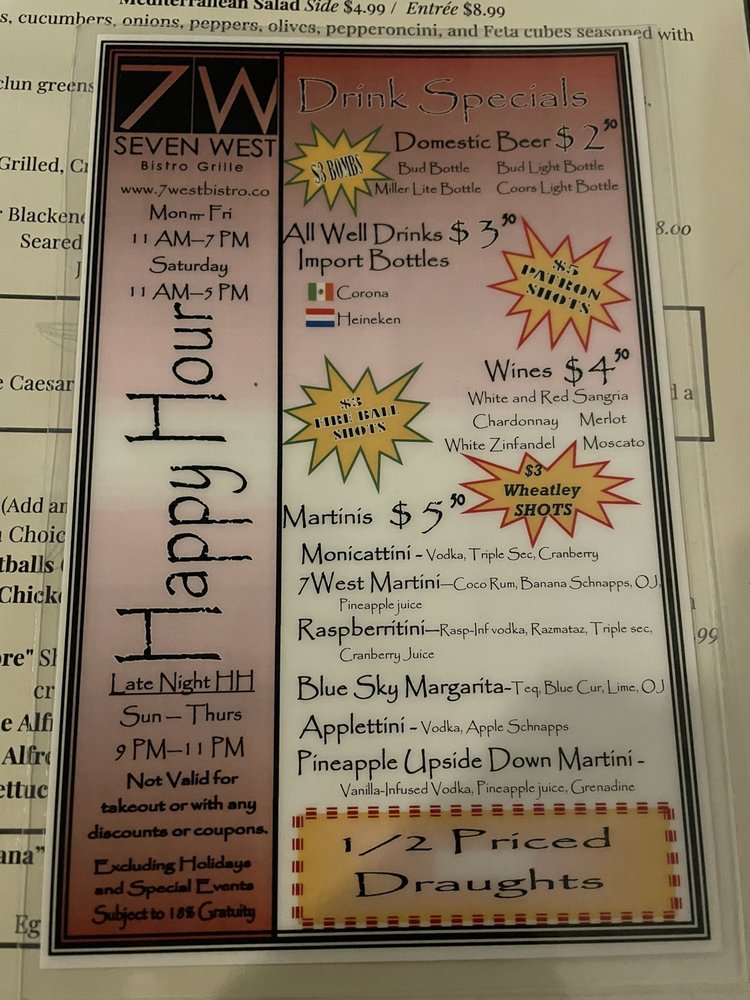 Mediterranean Salad Side $4.99 / Entrée $8.99
s, cucumbers, onions, peppers, olives, pepperoncini, and Feta cubes seasoned with
clun greens
Grilled,
Blackene
Seared
8.00
e Caesar
d a
(Add an
Choic
tballs
Chick
ore" Sl
cr
e Alf
Alfre
ettuc
ana"
Eg
99
7W
SEVEN WEST
Bistro Grille
www.7westbistro.co
Mon — Fri
11 AM—7 PM
Saturday
11 AM—5 PM
Happy Hour
Late Night HH
Sun — Thurs
9 PM—11 PM
Not Valid for
takeout or with any
discounts or coupons.
Excluding Holidays
and Special Events
Subject to 18% Gratuity
Drink Specials
$3 BOMBS
Domestic Beer $2.50
Bud Bottle Bud Light Bottle
Miller Lite Bottle Coors Light Bottle
All Well Drinks $3.50
Import Bottles
Corona
Heineken
$5
PATRON
SHOTS
Wines $4.50
White and Red Sangria
Chardonnay Merlot
White Zinfandel Moscato
$3
FIRE BALL
SHOTS
$3
Wheatley
SHOTS
Martinis $5.50
Monicattini - Vodka, Triple Sec, Cranberry
7West Martini—Coco Rum, Banana Schnapps, OJ,
Pineapple juice
Raspberritini—Rasp-Inf vodka, Razmataz, Triple sec,
Cranberry Juice
Blue Sky Margarita-Teq, Blue Cur, Lime, OJ
Applettini - Vodka, Apple Schnapps
Pineapple Upside Down Martini -
Vanilla-Infused Vodka, Pineapple juice, Grenadine
1/2 Priced
Draughts